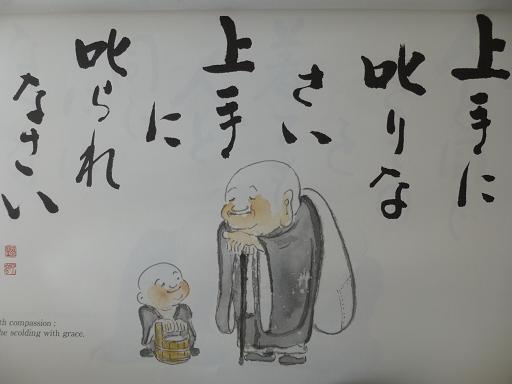 上手に
叱りな
さい
上手
に
叱られ
なさい
th compassion ;
he scolding with grace.